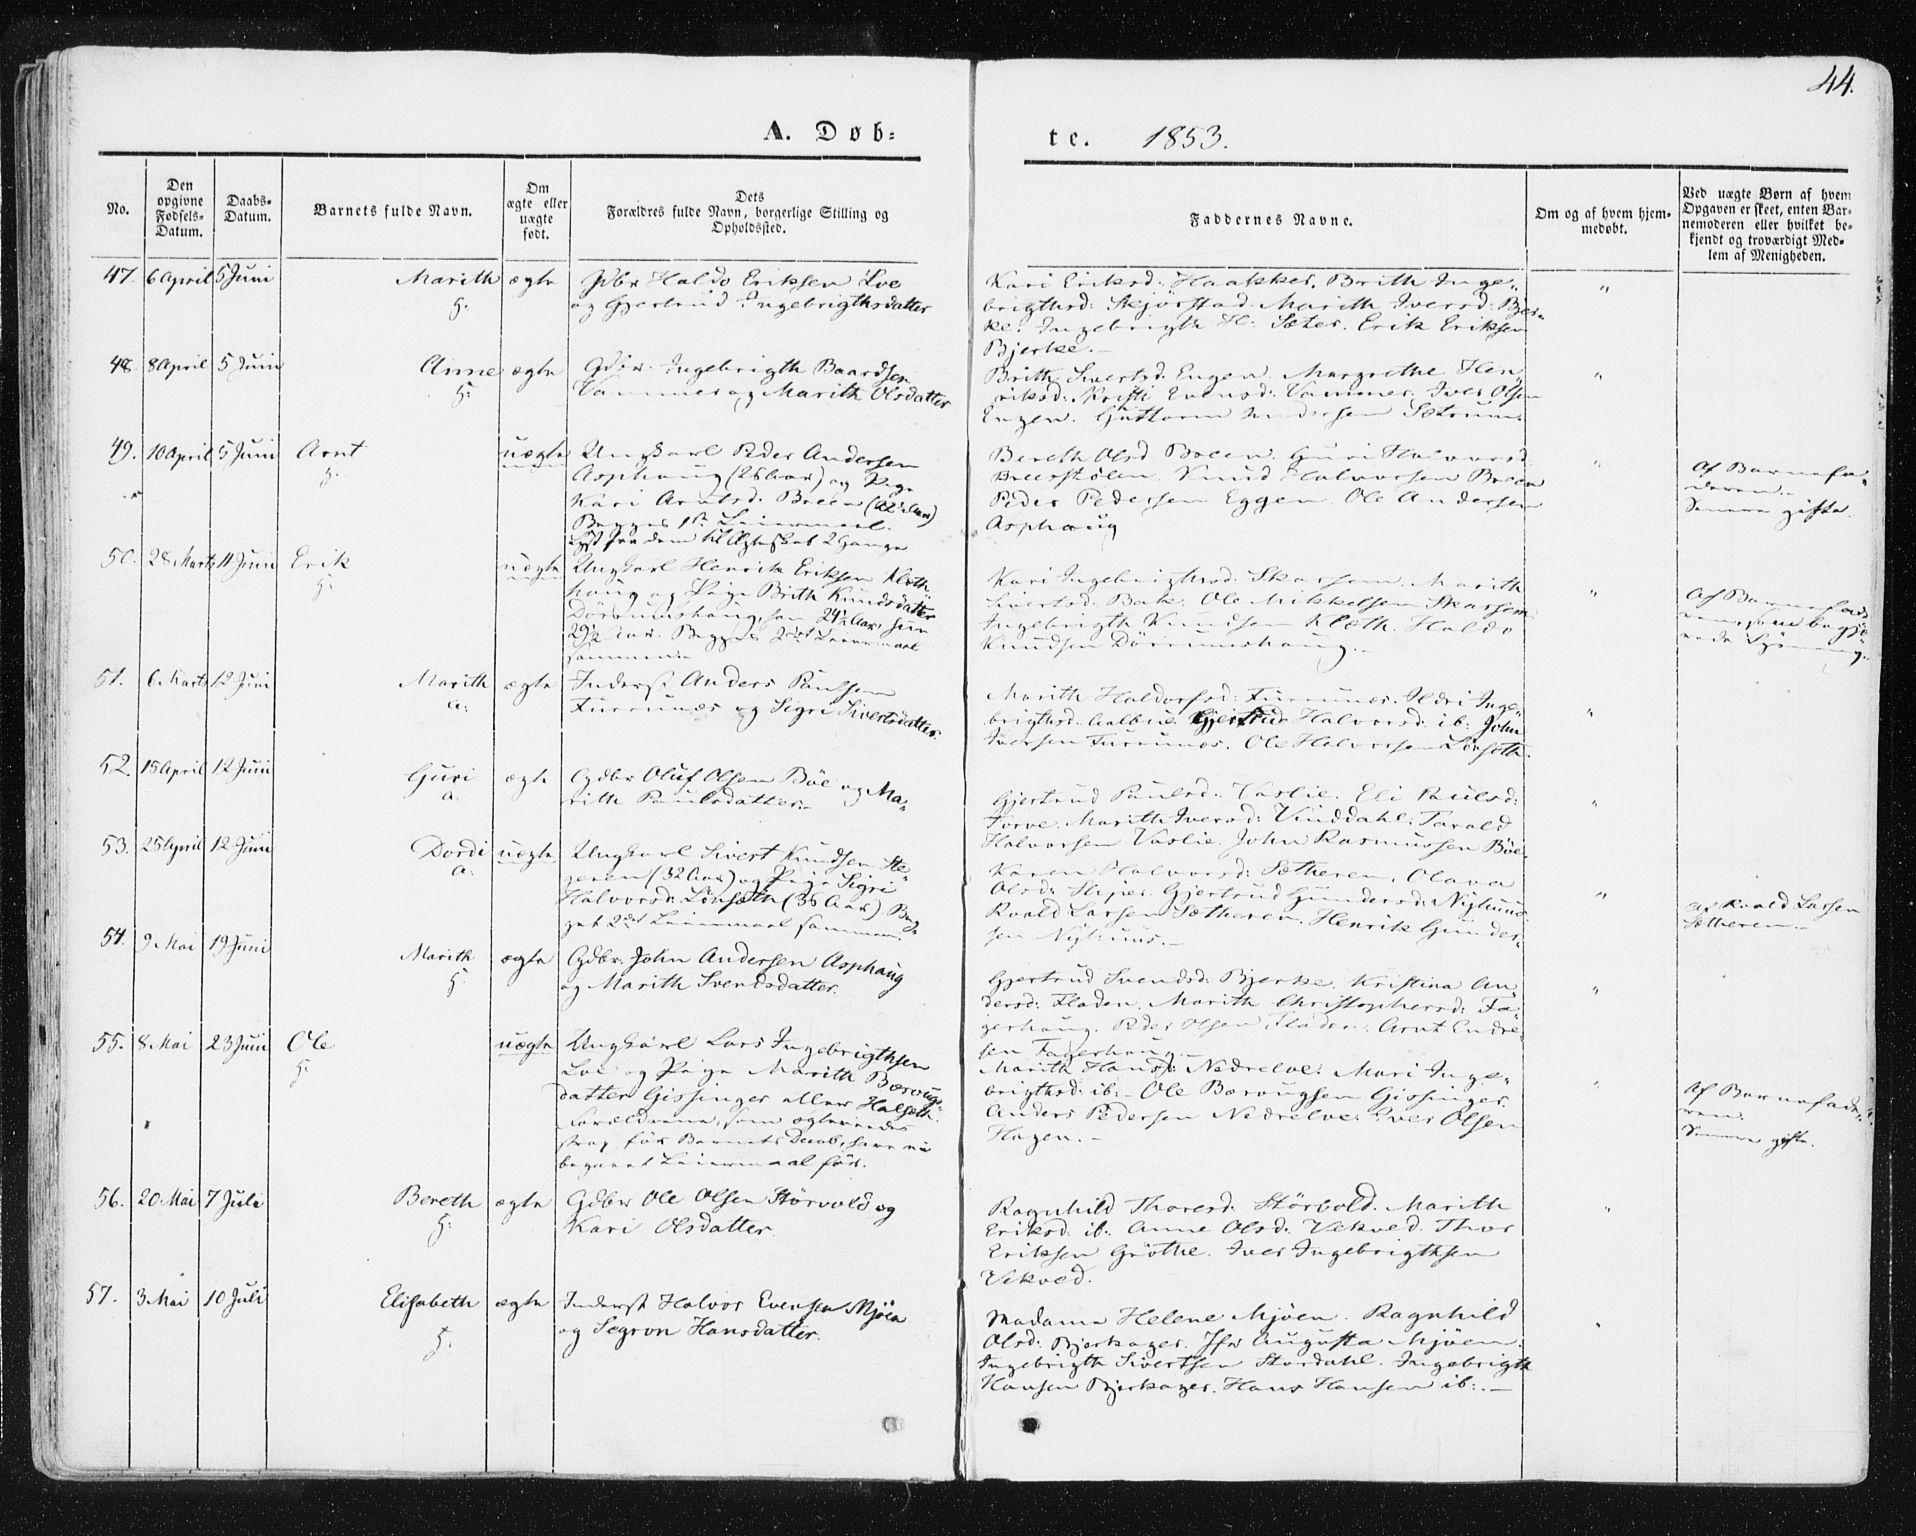 44.
A. Døb- te. 1853.
No.
Den opgivne Fødsels-Datum.
Daabs-Datum.
Barnets fulde Navn.
Om ægte eller uægte født.
Dets Forældres fulde Navn, borgerlige Stilling og Opholdssted.
Faddernes Navne.
Om og af hvem hjemmedøbt.
Ved uægte Børn af hvem Opgaven er skeet, enten Barnemoderen eller hvilket bekjendt og troværdigt Medlem af Menigheden.
47. 6 April 5 Juni Marith ægte
Haldo Eriksen Loe
og Gjertrud Ingebrigthsdatter
Kari Eriksd: Haakker, Brith Inge-
brigthsd: Skjørstad. Marith Iversd: Bjer-
ke. Ingebrigth H: Sæter. Erik Eriksen
Bjerke.
48. 8 April 5 Juni Anne ægte
Gdbr. Ingebrigth Baardsen
Vammer og Marith Olsdatter
Brith Sivertsd. Engen. Margrethe Hen-
riksd: Kristi Evensd: Vammer. Iver Olsen
Engen. Guttorm Andersen Sætrum.
49. 10 April 5 Juni Arnt uægte
Ungkarl Peder Andersen
Asphaug (26 Aar) og Pige
Kari Arntsd: Breen
Begges 1ste Leiermaal.
lyst for dem til Ægteskab 2 Gange
Bereth Olsd Breen. Guri Halvorsd
Breesstølen. Knud Halvorsen Breen
Peder Pedersen Eggen. Ole Andersen
Asphaug
Af Barnefa-
deren.
Senere gifte.
50. 28 Marts 11 Juni Erik uægte
Ungkarl Henrik Eriksen Kleth-
haug og Pige Brith Knudsdatter
Dørrumshaug, han 24½ Aar, hun
29½ Aar. Begges 2det Leiermaal
sammen.
Kari Ingebrigthsd: Skarsem. Marith
Sivertsd: Bak. Ole Mikkelsen Skarsem
Ingebrigth Knudsen Kleth. Haldo
Knudsen Dørrumshaug.
Af Barnefade-
ren, som begjæ-
rede
51. 6 Marts 12 Juni Marith ægte
a.
Inderst Anders Paulsen
Furrunæs og Sigri Sivertsdatter.
Marith Haldorsd: Furrunæs. Ildri Inge-
brigthsd. Aalbue. Gjertrud Halvorsd: ib: John
Iversen Furrunæs. Ole Halvorsen Lønseth.
52. 15 April 12 Juni Guri ægte
a.
Gdbr Oluf Olsen Böe og Ma-
rith Paulsdatter.
Gjertrud Paulsd. Vaslie. Eli Paulsd:
Torve. Marith Iversd: Vinddahl. Tarald
Halvorsen Vaslie. John Rasmussen Böe.
53. 25 April 12 Juni Dordi uægte
a:
Ungkarl Sivert Knudsen Ste-
geren (32 Aar) og Pige Sigri
Halvorsd: Lönseth (36 Aar) Beg-
ges 2det Leiermaal sammen.
Karen Halvorsd: Sætheren. Olava
Olsd: Skjer. Gjertrud Gundersd: Nyhuus
Roald Larsen Sætheren. Henrik Gunder-
sen Nyhuus.
af Roald Larsen
Sætheren.
54. 9 Mai 19 Juni Marith ægte
Gdbr. John Andersen Asphaug
og Marith Svendsdatter.
Gjertrud Svendsd: Bjerke. Kristina An-
dersd: Fladen. Marith Christophersd: Fa-
gerhaug. Peder Olsen Fladen. Arnt Endre-
sen Fagerhaug.
55. 8 Mai 23 Juni Ole uægte
Ungkarl Lars Ingebrigthsen
Loe og Pige Marith Baarougs-
datter Gissinger eller Halseth.
Forældrene, som ægteviedes
strax før Barnets Daab, have ei
begaaet Leiermaal før.
Marith Hansd: Nedreloe. Mari Inge-
brigthsd: ib: Ole Baarougsen Gissinger
Anders Pedersen Nedreloe. Iver Olsen
Hagen.
Af Barnefade-
ren.
Senere gifte.
56. 20 Mai 7 Juli Bereth ægte
Gdbr Ole Olsen Störvold og
Kari Olsdatter
Ragnhild Thoresd: Störvold. Marith
Eriksd: ib: Anne Olsd: Vekved. Thor
Eriksen Gröthe. Iver Ingebrigthsen
Vekved.
57. 3 Mai 10 Juli Elisabeth ægte
Inderst Halvor Evensen Mjöen
og Segron Hansdatter.
Madame Helene Mjöen. Ragnhild
Olsd: Bjerkager. Jfr Augusta Mjöen.
Ingebrigth Sivertsen Stordahl. Ingebrigth
Hansen Bjerkager. Hans Hansen ib: